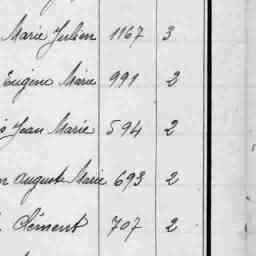 Marie Julien 1167 3
Eugène Marie 991 2
Jean Marie 594 2
Auguste Marie 693 2
Clément 707 2